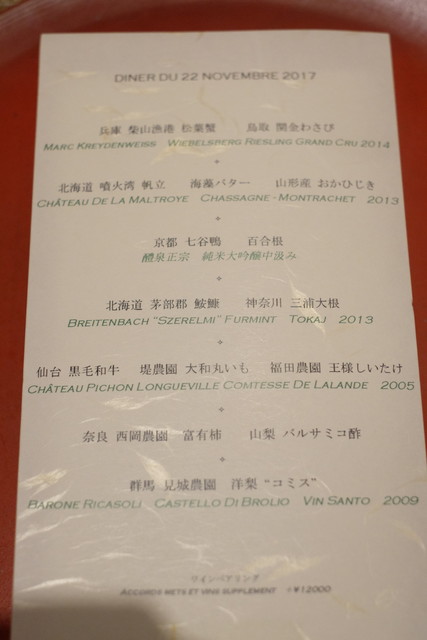 DINER DU 22 NOVEMBRE 2017
兵庫 柴山漁港 松葉蟹　　鳥取 関金わさび
MARC KREYDENWEISS WIEBELSBERG RIESLING GRAND CRU 2014
北海道 噴火湾 帆立　　海藻バター　　山形産 おかひじき
CHÂTEAU DE LA MALTROYE CHASSAGNE-MONTRACHET 2013
京都 七谷鴨　　百合根
醴泉正宗 純米大吟醸中汲み
北海道 茅部郡 鮟鱇　　神奈川 三浦大根
BREITENBACH "SZERELMI" FURMINT TOKAJ 2013
仙台 黒毛和牛　堤農園 大和丸いも　福田農園 王様しいたけ
CHÂTEAU PICHON LONGUEVILLE COMTESSE DE LALANDE 2005
奈良 西岡農園 富有柿　　山梨 バルサミコ酢
群馬 見城農園　洋梨 "コミス"
BARONE RICASOLI CASTELLO DI BROLIO VIN SANTO 2009
ワインペアリング
ACCORDS METS ET VINS SUPPLEMENT +¥12000